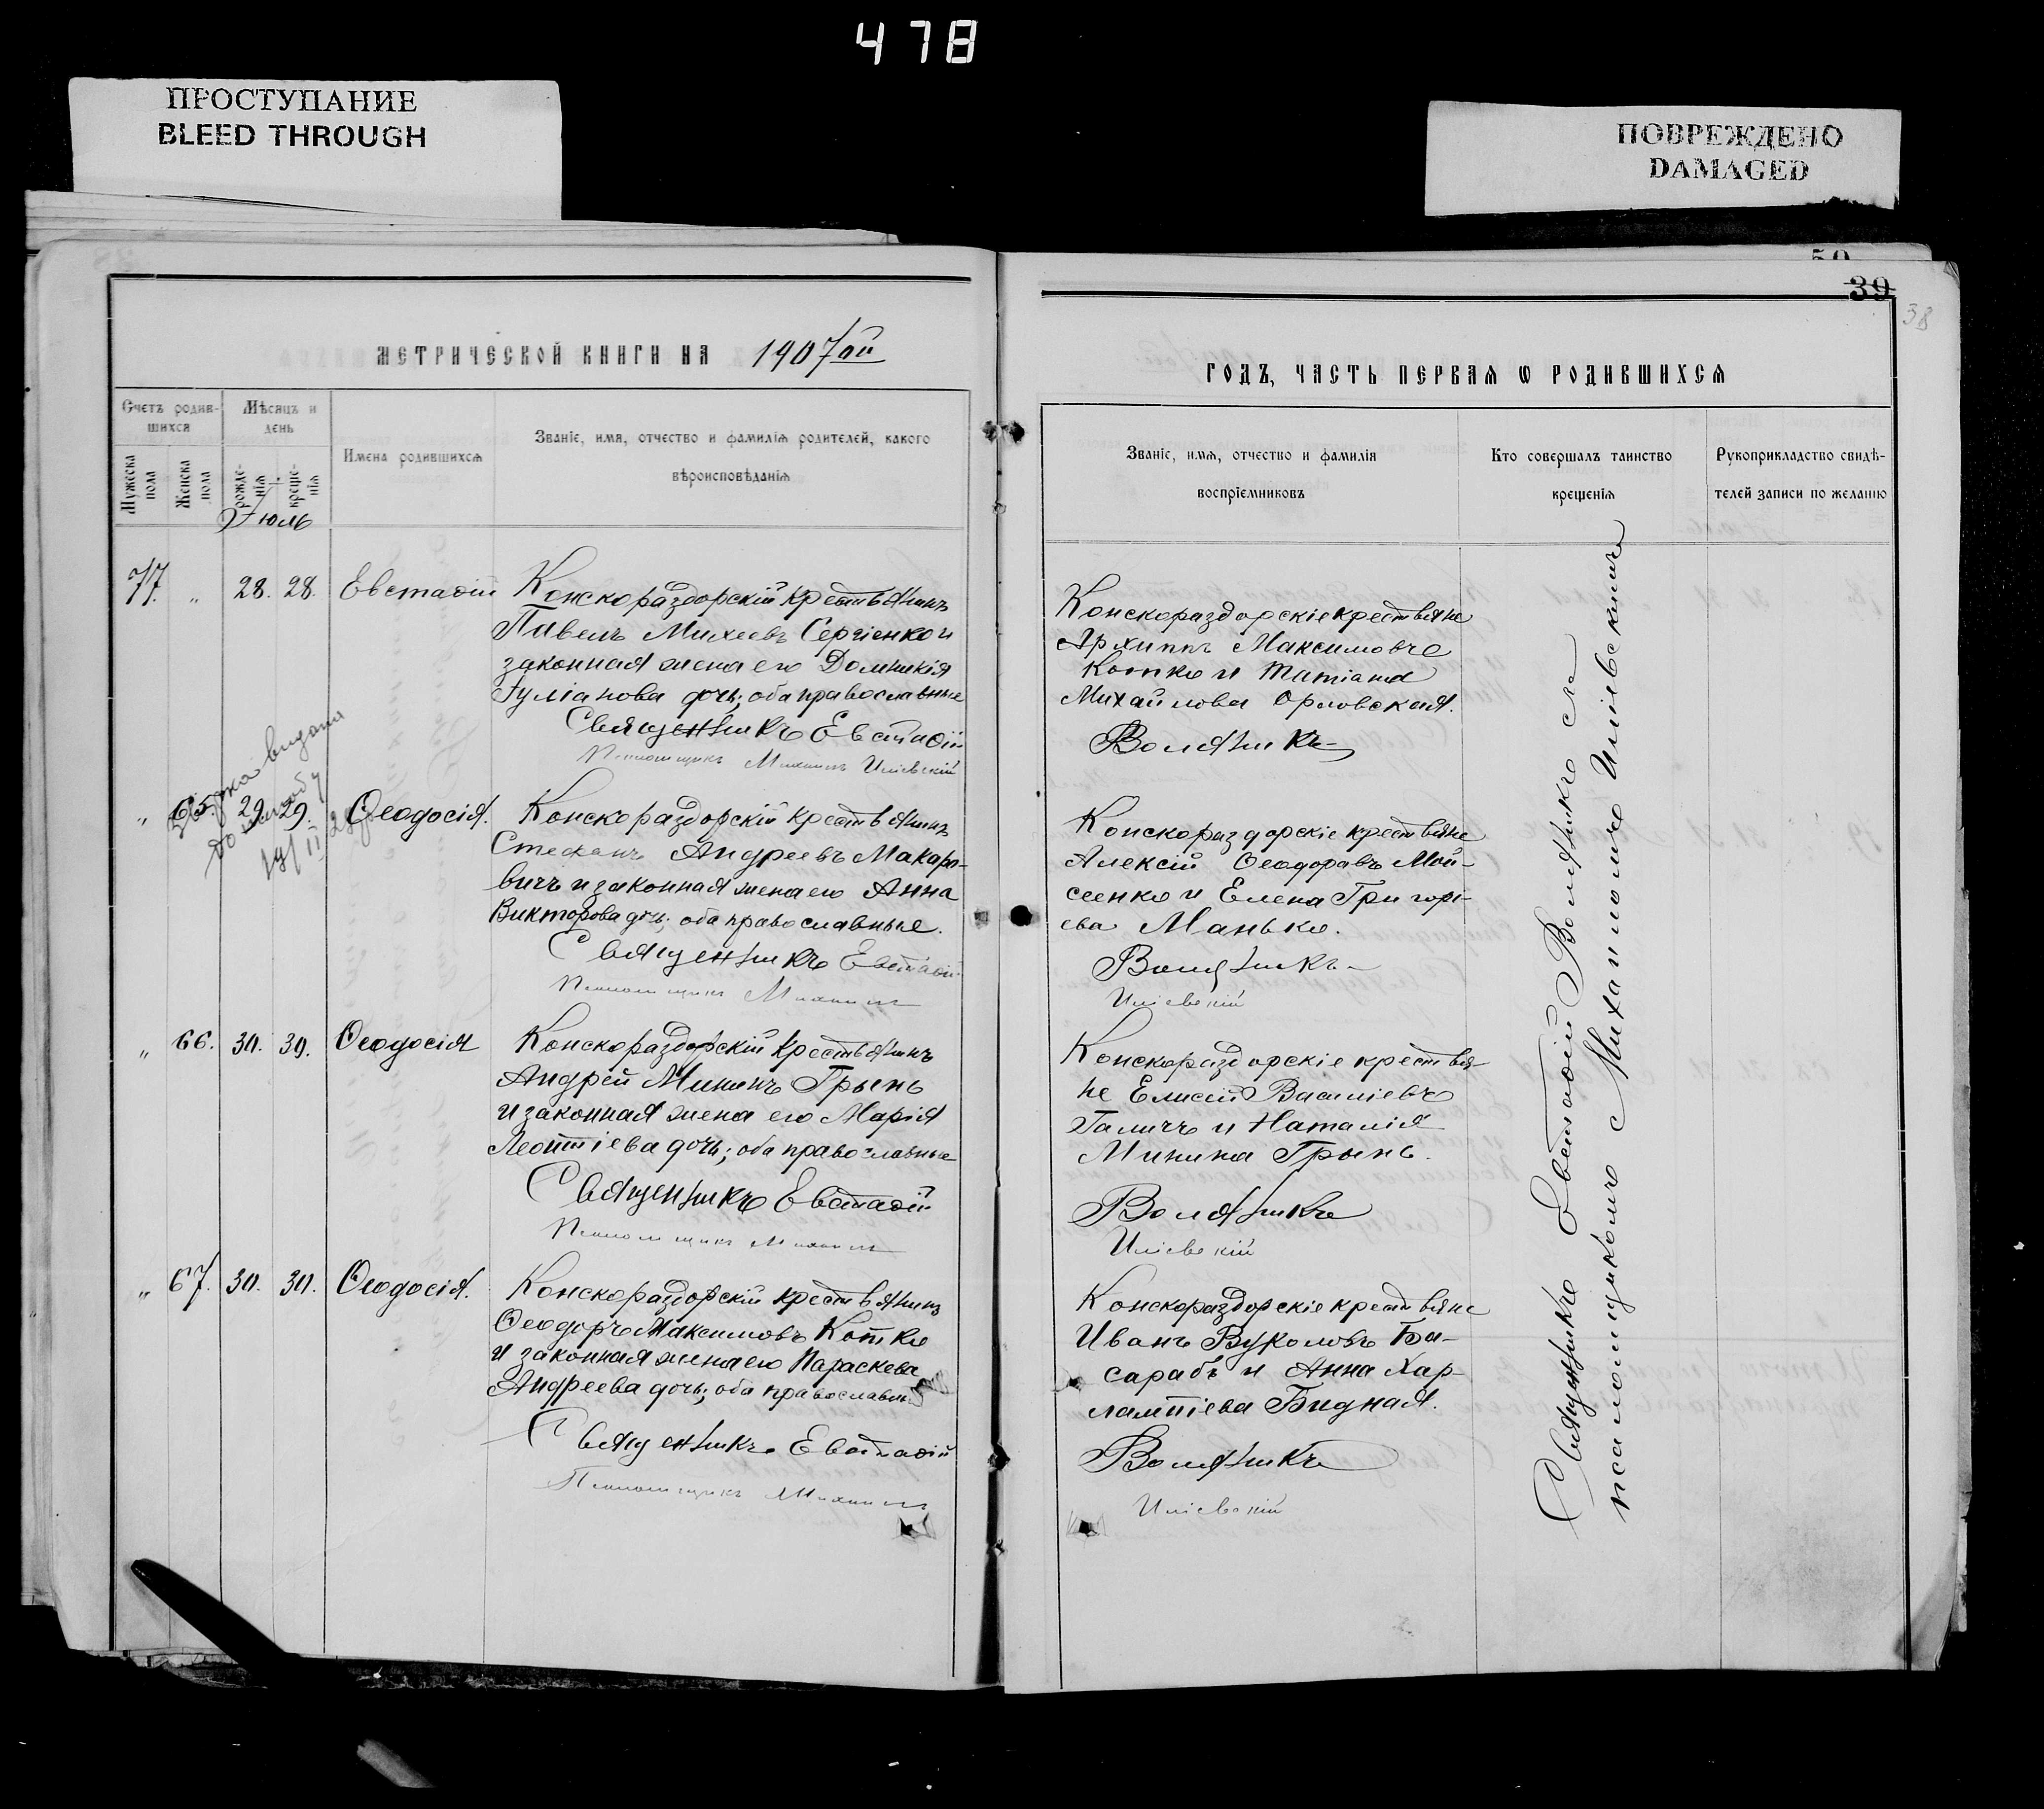 478
ПРОСТУПАНИЕ
BLEED THROUGH
ПОВРЕЖДЕНО
DAMAGED
50
39
38
МЕТРИЧЕСКОЙ КНИГИ НА 1907ой
Счетъ родив-
шихся
Мѣсяцъ и
день
Мужеска
пола
Женска
пола
рожде-
нія
креще-
нія
Имена родившихся
Званіе, имя, отчество и фамилія родителей, какого
вѣроисповѣданія
Іюль
77. " 28. 28. Евстафій
Конскораздорскій крестьянинъ
Павелъ Михеевъ Сергіенко и
законная жена его Домникія
Іуліанова дочь; оба православные
Священникъ Евстафій
Псаломщикъ Михаилъ Иліевскій
" 65. 29. 29. Ѳеодосія.
видана
Конскораздорскій крестьянинъ
Стефанъ Андреевъ Макаро-
вичъ и законная жена его Анна
Викторова дочь; оба православные.
Священникъ Евстафій
Псаломщикъ Михаилъ
" 66. 30. 30. Ѳеодосія
Конскораздорскій крестьянинъ
Андрей Мининъ Грынь
и законная жена его Марія
Леонтіева дочь; оба православные
Священникъ Евстафій
Псаломщикъ Михаилъ
" 67. 30. 30. Ѳеодосія.
Конскораздорскій крестьянинъ
Ѳеодоръ Максимовъ Котко
и законная жена его Параскева
Андреева дочь; оба православные
Священникъ Евстафій
Псаломщикъ Михаилъ
ГОДЪ, ЧАСТЬ ПЕРВАЯ Ѡ РОДИВШИХСЯ
Званіе, имя, отчество и фамилія
воспріемниковъ
Кто совершалъ таинство
крещенія
Рукоприкладство свидѣ-
телей записи по желанію
Конскораздорскіе крестьяне
Архиппъ Максимовъ
Котко и Татіана
Михайлова Орловская.
Воляникъ
Конскораздорскіе крестьяне
Алексій Ѳеодоровъ Мой-
сеенко и Елена Григорі-
ева Манько.
Воляникъ
Иліевскій
Конскораздорскіе крестья-
не Елисей Василіевъ
Галичъ и Наталія
Минина Грынь.
Воляникъ
Иліевскій
Конскораздорскіе крестьяне
Иванъ Вуколовъ Ба-
сарабъ и Анна Хар-
лампіева Бидная.
Воляникъ
Иліевскій
Священникъ Евстафій Воляникъ съ
псаломщикомъ Михаиломъ Иліевскимъ